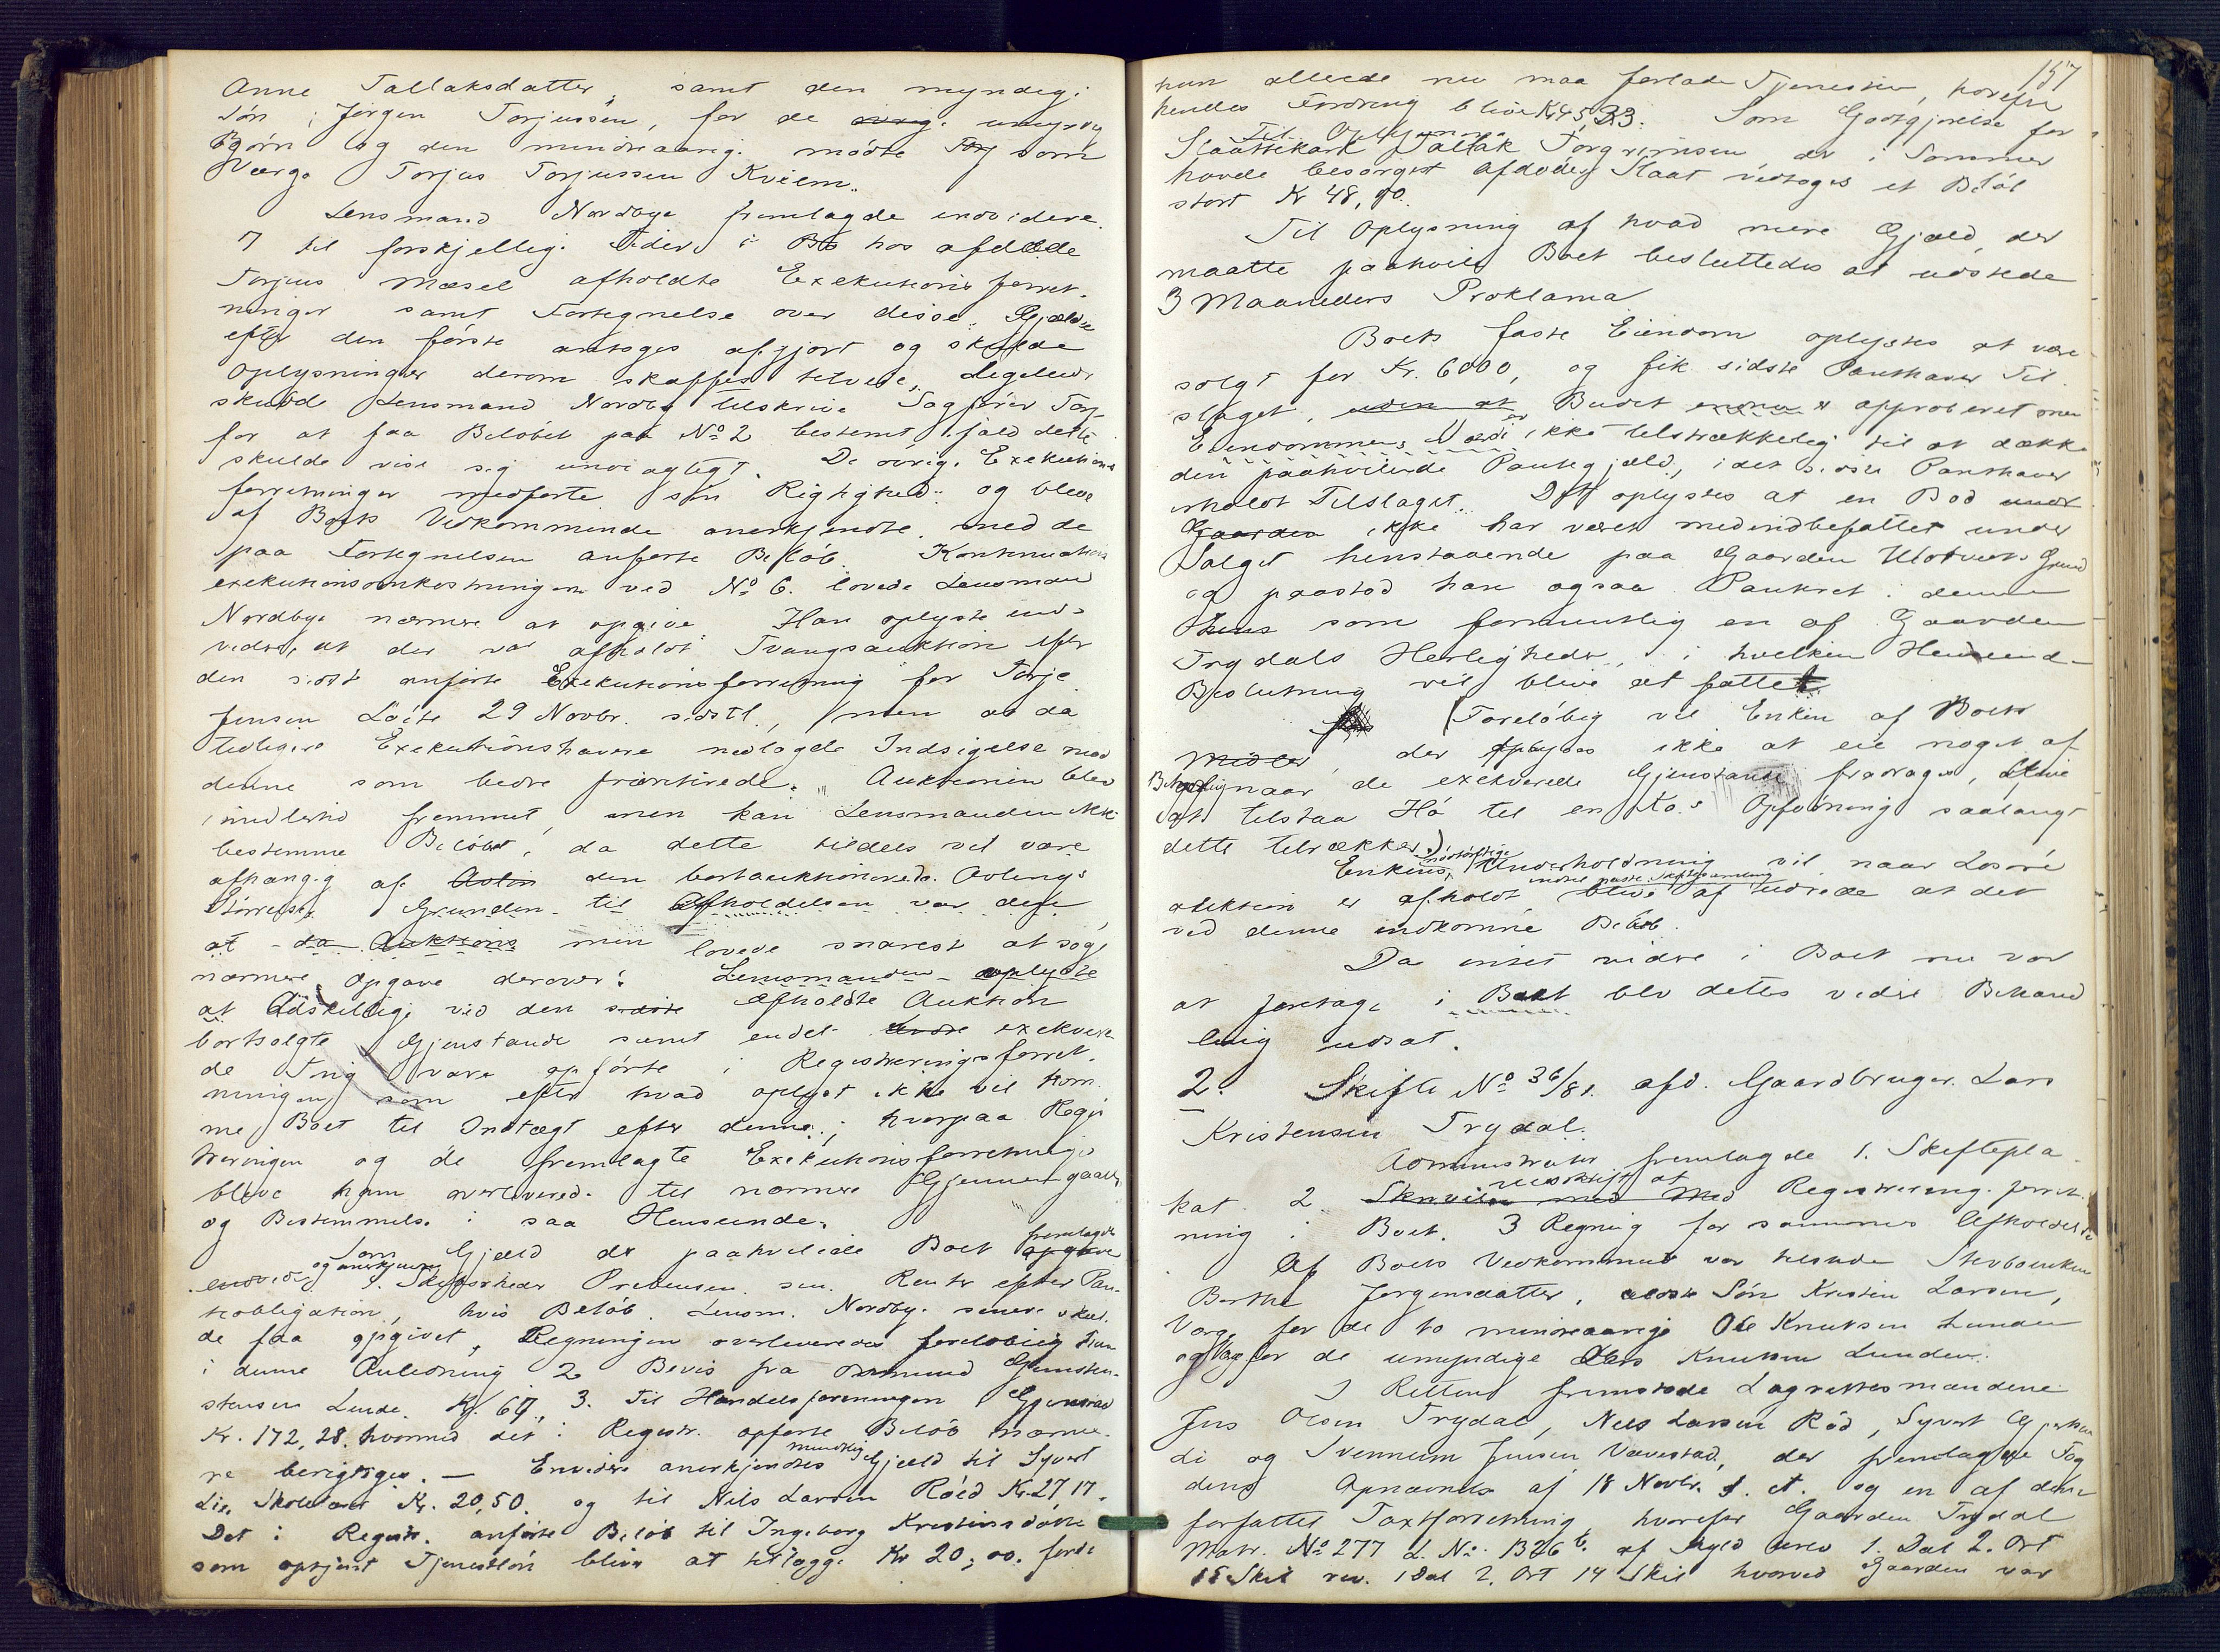 Anne Tallaksdatter, samt den myndige
Søn Jørgen Torjussen, for de øvrige umyndige
Børn og den mindreaarige mødte Torj som
Værge Torjus Torjussen Kviem.
Lensmand Nordbye fremlagde endvidere
7 til forskjellige Tider i Bo hos afdøde
Torjus Mæsel afholdte Exekutionsforret-
ninger samt Fortegnelse over disse. Gjælden
efter den første antoges afgjort og skulde
Oplysninger derom skaffes tilveie, ligeledes
skulde Lensmand Nordby tilskrive Sagfører
for at faa Beløbet paa No 2 bestemt ifald dette
skulde vise sig unøiagtigt. De øvrige Exekutions
forretninger medførte sin Rigtighed og bleve
af Boets Vedkommende anerkjendte med de
paa Fortegnelsen anførte Beløb. Kontinuations
exekutionsomkostningerne ved No 6. lovede Lensmand
Nordbye nærmere at opgive. Han oplyste end-
videre, at der var afholdt Tvangsauktion efter
den sidst anførte Exekutionsforretning for Terje
Jensen Løite 29 Novbr. sidstl., men at da
tidligere Exekutionshavere nedlagde Indsigelse mod
denne som bedre prioriterede. Auktionen blev
imidlertid fremmet, men kan Lensmanden ikke
bestemme Beløbet, da dette tildels vil være
afhængig af Avlin den bortauktionerede Avlings
Størrelse Grunden til Afholdelsen var den
at da Auktions men lovede snarest at søge
nærmere Opgave derover. Lensmanden oplyste
at Adskillige ved den sidste afholdte Auktion
bortsolgte Gjenstande samt endel andre exekvere-
de Ting vare opførte i Registreringsforret-
ningen, som efter hvad oplyst ikke vil kom-
me Boet til Indtægt efter denne; hvorpaa Regi
streringen og de fremlagte Exekutionsforretninger
bleve ham overleverede til nærmere Gjennemgaaelse
og Bestemmelse i saa Henseende.
Som Gjæld der paahvilede Boet opgave fremlagdes
endvidere og anerkjendtes 1. Skibsreder Prebensen sen. Renter efter Pan-
teobligation, hvis Beløb Lensm. Nordby senere skul-
de faa opgivet, Regningen overleveredes foreløbig ham
i denne Anledning 2 Bevis fra Gunsten-
stensen Lunde. Kr. 67, 3. Til Handelsforeningen Gjenstad
Kr. 172,28. hvormed det i Registr. opførte Beløb nærme-
re berigtiges. — Endvidere anerkjendtes mundtlig Gjæld til Syvert
Lie, Skolelærer Kr. 20,50. og til Nils Larsen Røed Kr. 27,17.
Det i Registr. anførte Beløb til Ingeborg Kristensdatter
som optjent Tjenestløn bliver at tillægge Kr 20,00. fordi
157
hun allerede nu maa forlade Tjenesten, hvorefter
hendes Fordring bliver Kr 45,33. Som Godtgjørelse for
Til Oplysning
Slaattekarl Tallak Torgrimsen, der i Sommer
havde besørget Afdødes Slaat vedtoges et Beløb
stort Kr 48,00.
Til Oplysning af hvad mere Gjæld der
maatte paahvile Boet besluttedes at udstede
3 Maaneders Proklama
Boets faste Eiendom oplystes at være
solgt for Kr. 6000, og fik sidste Panthaver Til-
slaget, uden at Budet endnu er approberet men
Eiendommens Værdi er ikke tilstrækkelig til at dække
den paahvilende Pantegjæld, idet sidste Panthaver
erholdt Tilslaget. Det oplystes at en Bod under
Gaarden ikke har været medindbefattet under
Salget henstaaende paa Gaarden Ulltveits Grund
og paastod han ogsaa Panteret i denne
Huus som formentlig en af Gaarden
Trydals Herligheder, i hvilken Henseende
Beslutning vil blive at fattet
Foreløbig vil Enken af Boets
Midler, der oplyses ikke at eie noget af
Betydelighed naar de exekverede Gjenstande fradrages, blive
at tilstaa Hø til en Ko's Opfødning saalangt
dette tilrækker.
Enkens nødtørftige Underholdning vil naar Løsøre
auktion er afholdt indtil næste Skiftesamling blive at udrede af det
ved denne indkomne Beløb.
Da intet videre i Boet nu var
at foretage i Boet blev dettes videre Behand
ling udsat.
2. Skifte No 36/81. afd. Gaardbruger Lars
Kristensen Trydal.
Administrator fremlagde 1. Skiftepla-
kat 2. Skrivelse med Udskrift af Registrerings forret-
ning i Boet. 3 Regning for sammes Afholdelse
Af Boets Vedkommende var tilstede Stervboenken
Berthe Jørgensdatter, ældste Søn Kristen Larsen,
Værge for de to mindreaarige Ole Knutsen Lunden
og Værge for de umyndige Lars Knutsen Lunden.
I Retten fremstode Lagrettesmændene
Jens Olsen Trydal, Nils Larsen Rød, Syvert
di og Svennum Jensen Vævestad, der fremlagde Fog
dens Opnævnelse af 18 Novbr. d. A. og en af dem
forfattet Taxtforretning hvorefter Gaarden Trydal
Matr. No 277 L. No. 1326 b. af Skyld urev 1. Dal 2. Ort
15 Skil rev. 1 Dal 2. Ort 14 Skil hvorved Gaarden var